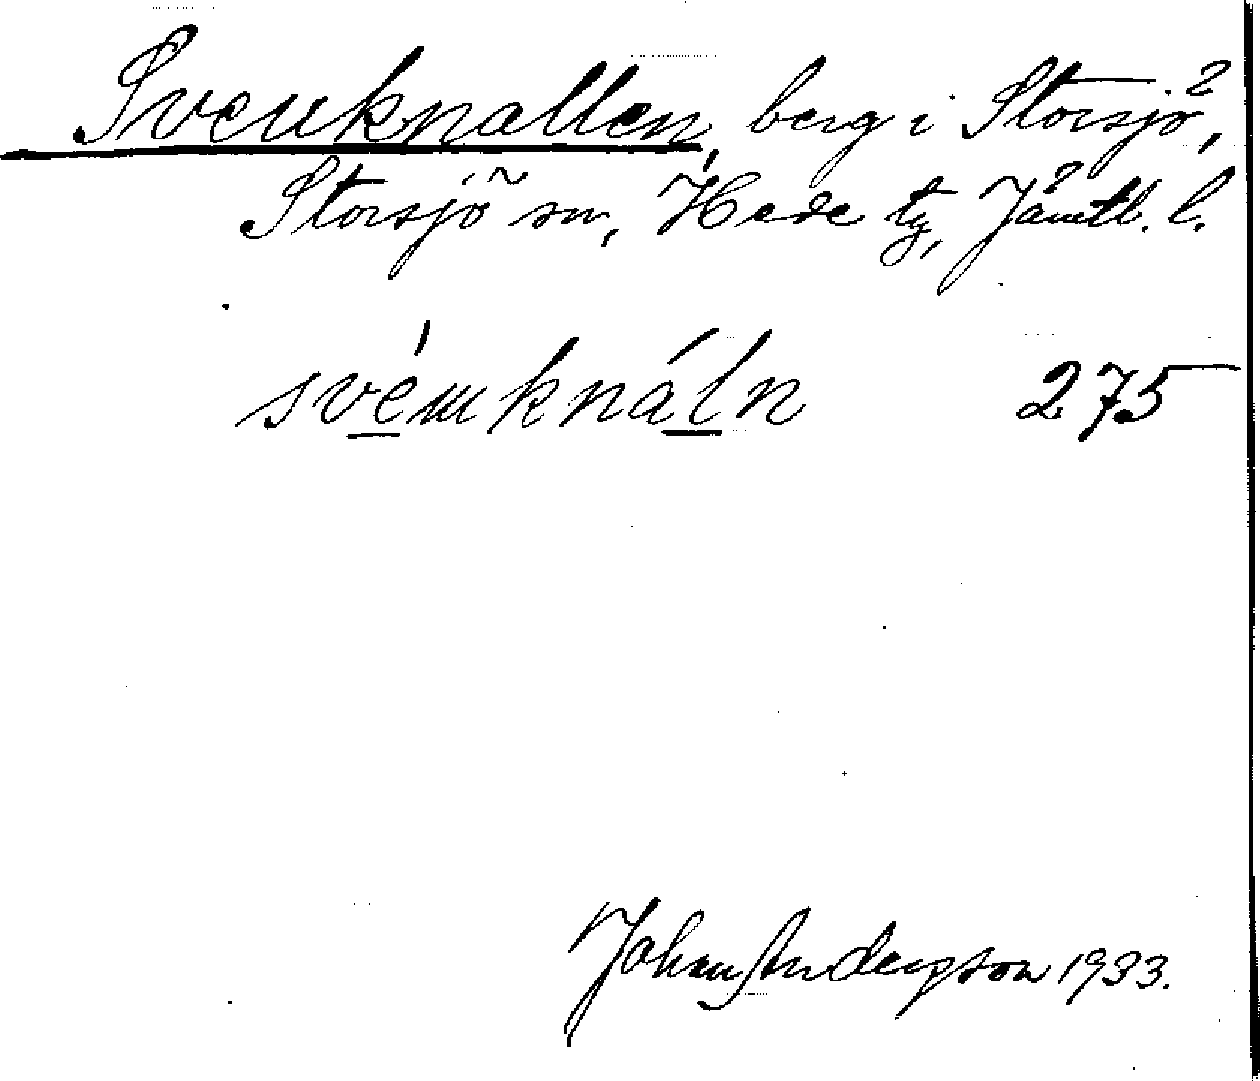 Svenknallen, berg i Storsjö,
Storsjö sn, Hede tg, Jämtl. l.
svénknáln 275
Johan Andersson 1933.